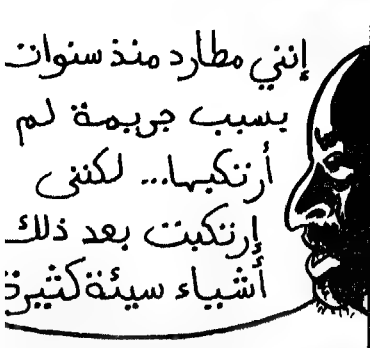 إنني مطارد منذ سنوات
بسبب جريمة لم
أرتكبها... لكننى
إرتكبت بعد ذلك
أشياء سيئة كثيرة